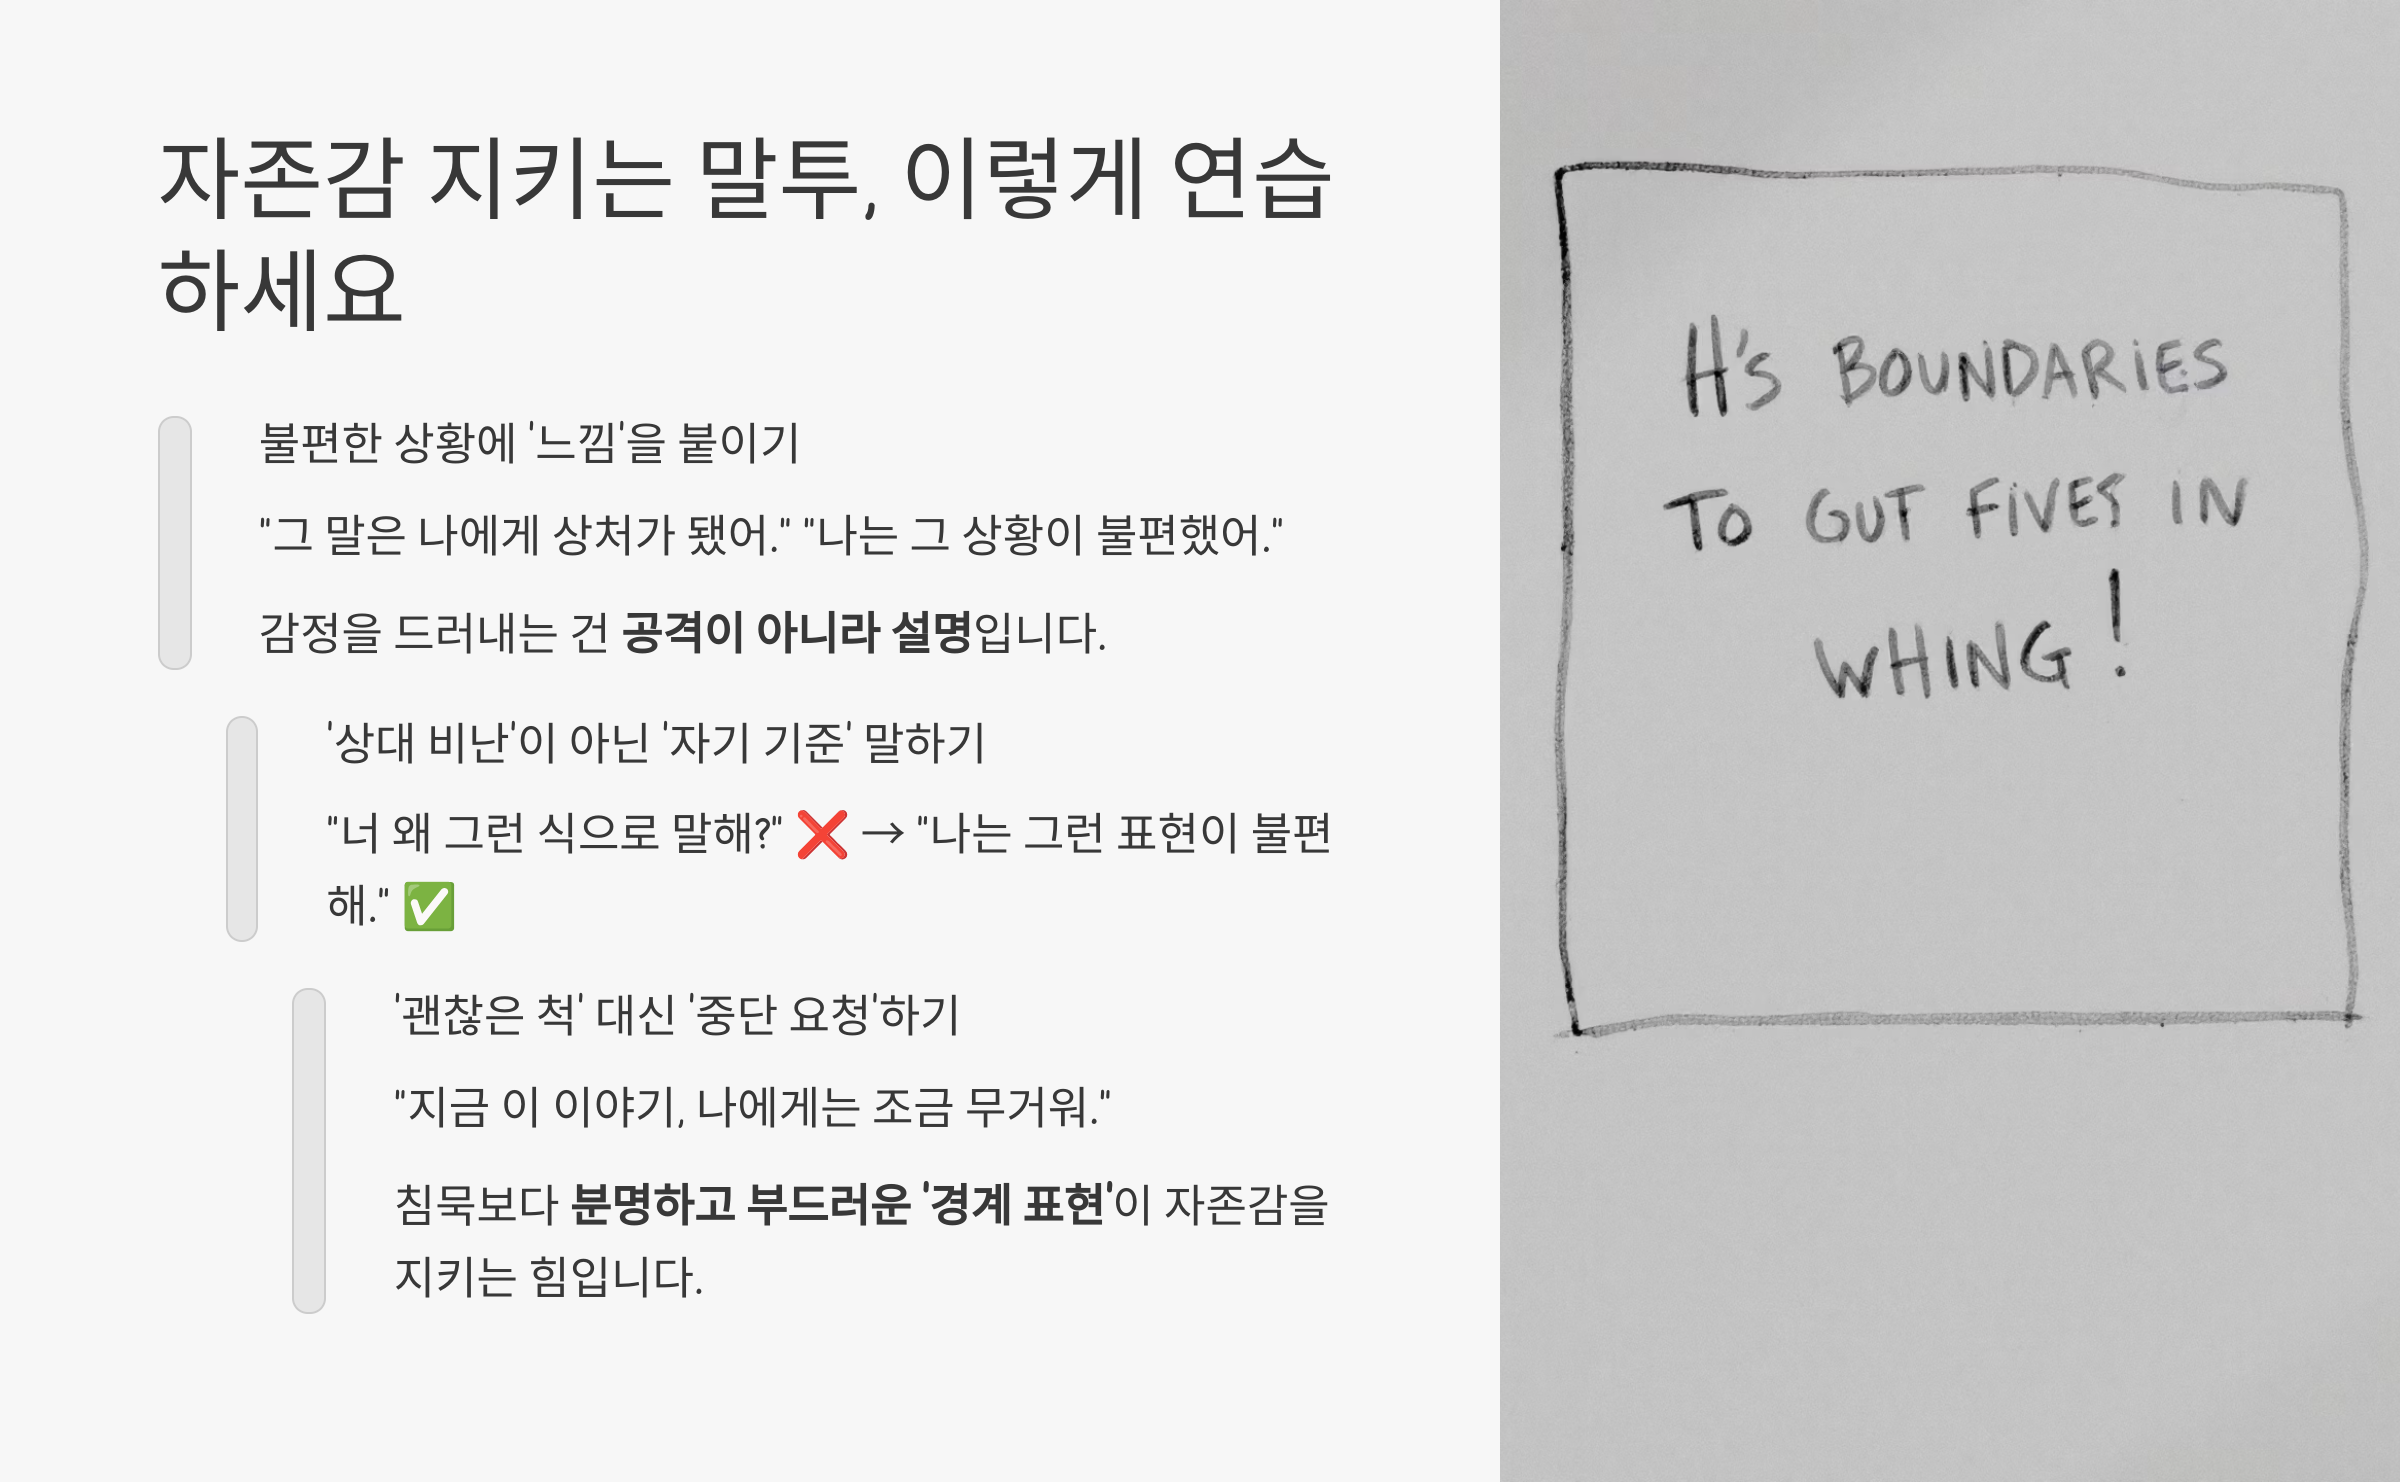 자존감 지키는 말투, 이렇게 연습
하세요
불편한 상황에 '느낌'을 붙이기
"그 말은 나에게 상처가 됐어." "나는 그 상황이 불편했어."
감정을 드러내는 건 공격이 아니라 설명입니다.
'상대 비난'이 아닌 '자기 기준' 말하기
"너 왜 그런 식으로 말해?" ❌ → "나는 그런 표현이 불편
해." ✅
'괜찮은 척' 대신 '중단 요청'하기
"지금 이 이야기, 나에게는 조금 무거워."
침묵보다 분명하고 부드러운 '경계 표현'이 자존감을
지키는 힘입니다.
H's BOUNDARiES
TO GUT IN
WHING!